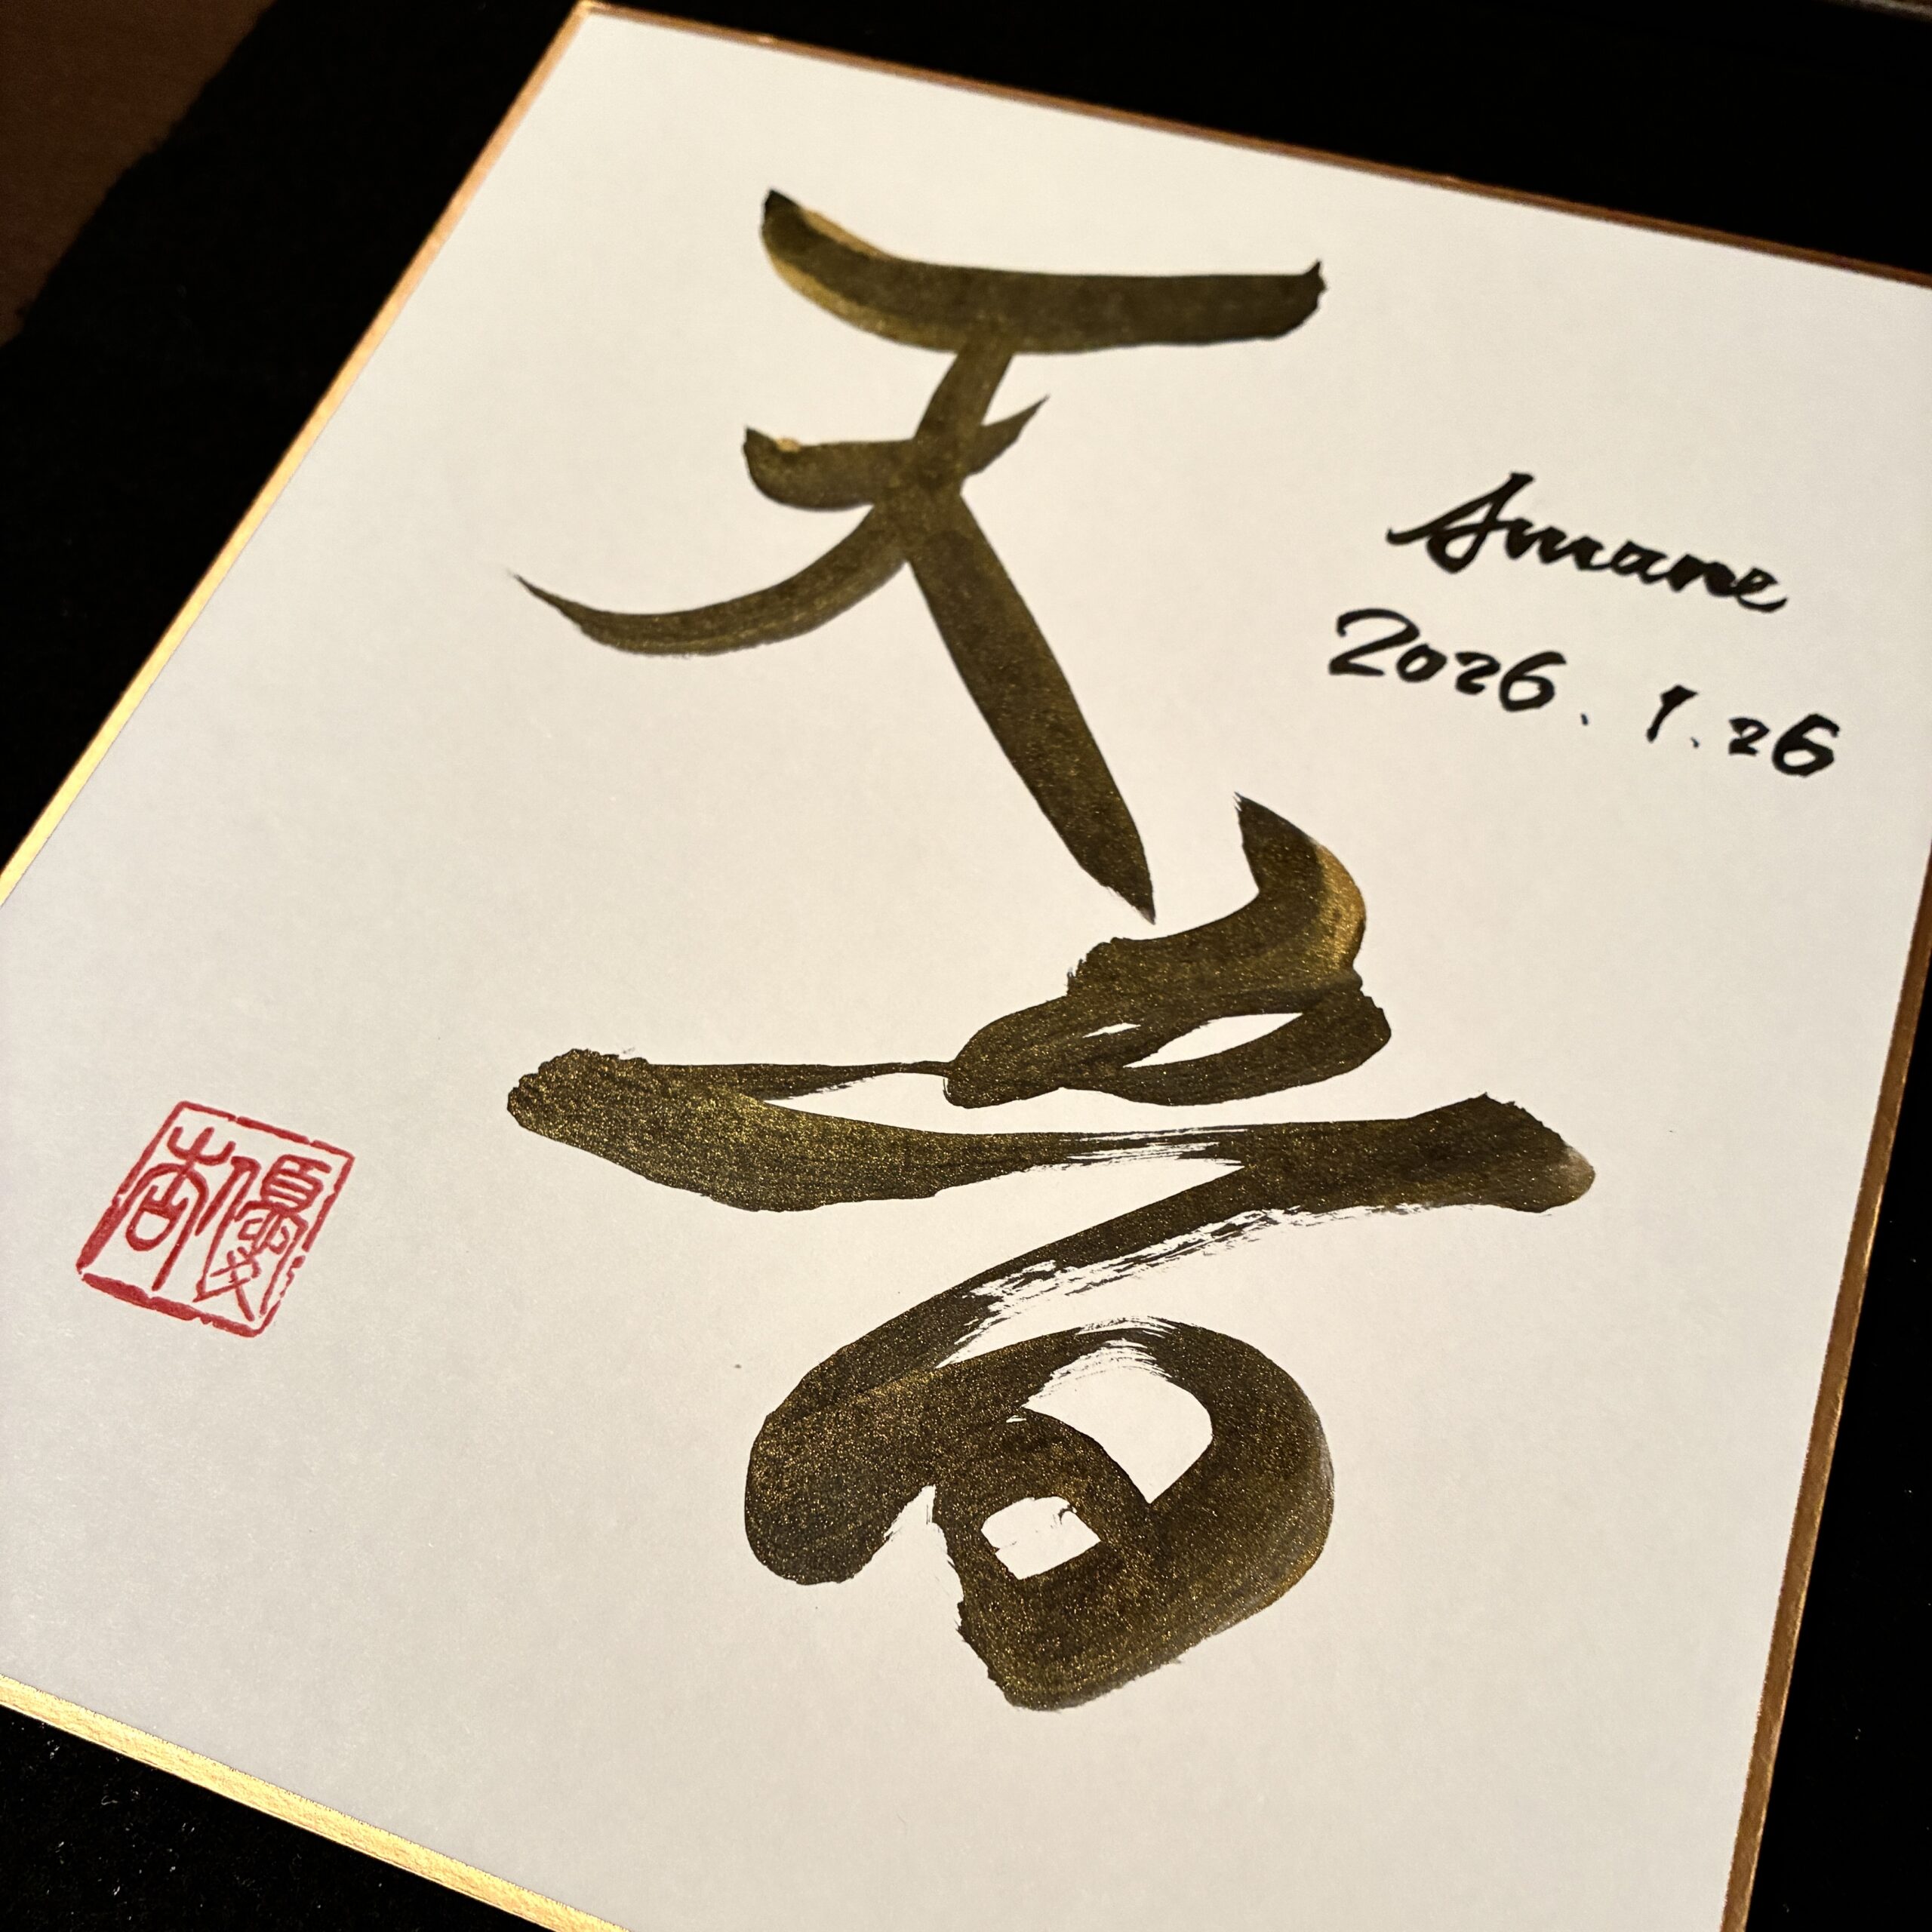 天音
Amane
2026.1.26
優杏